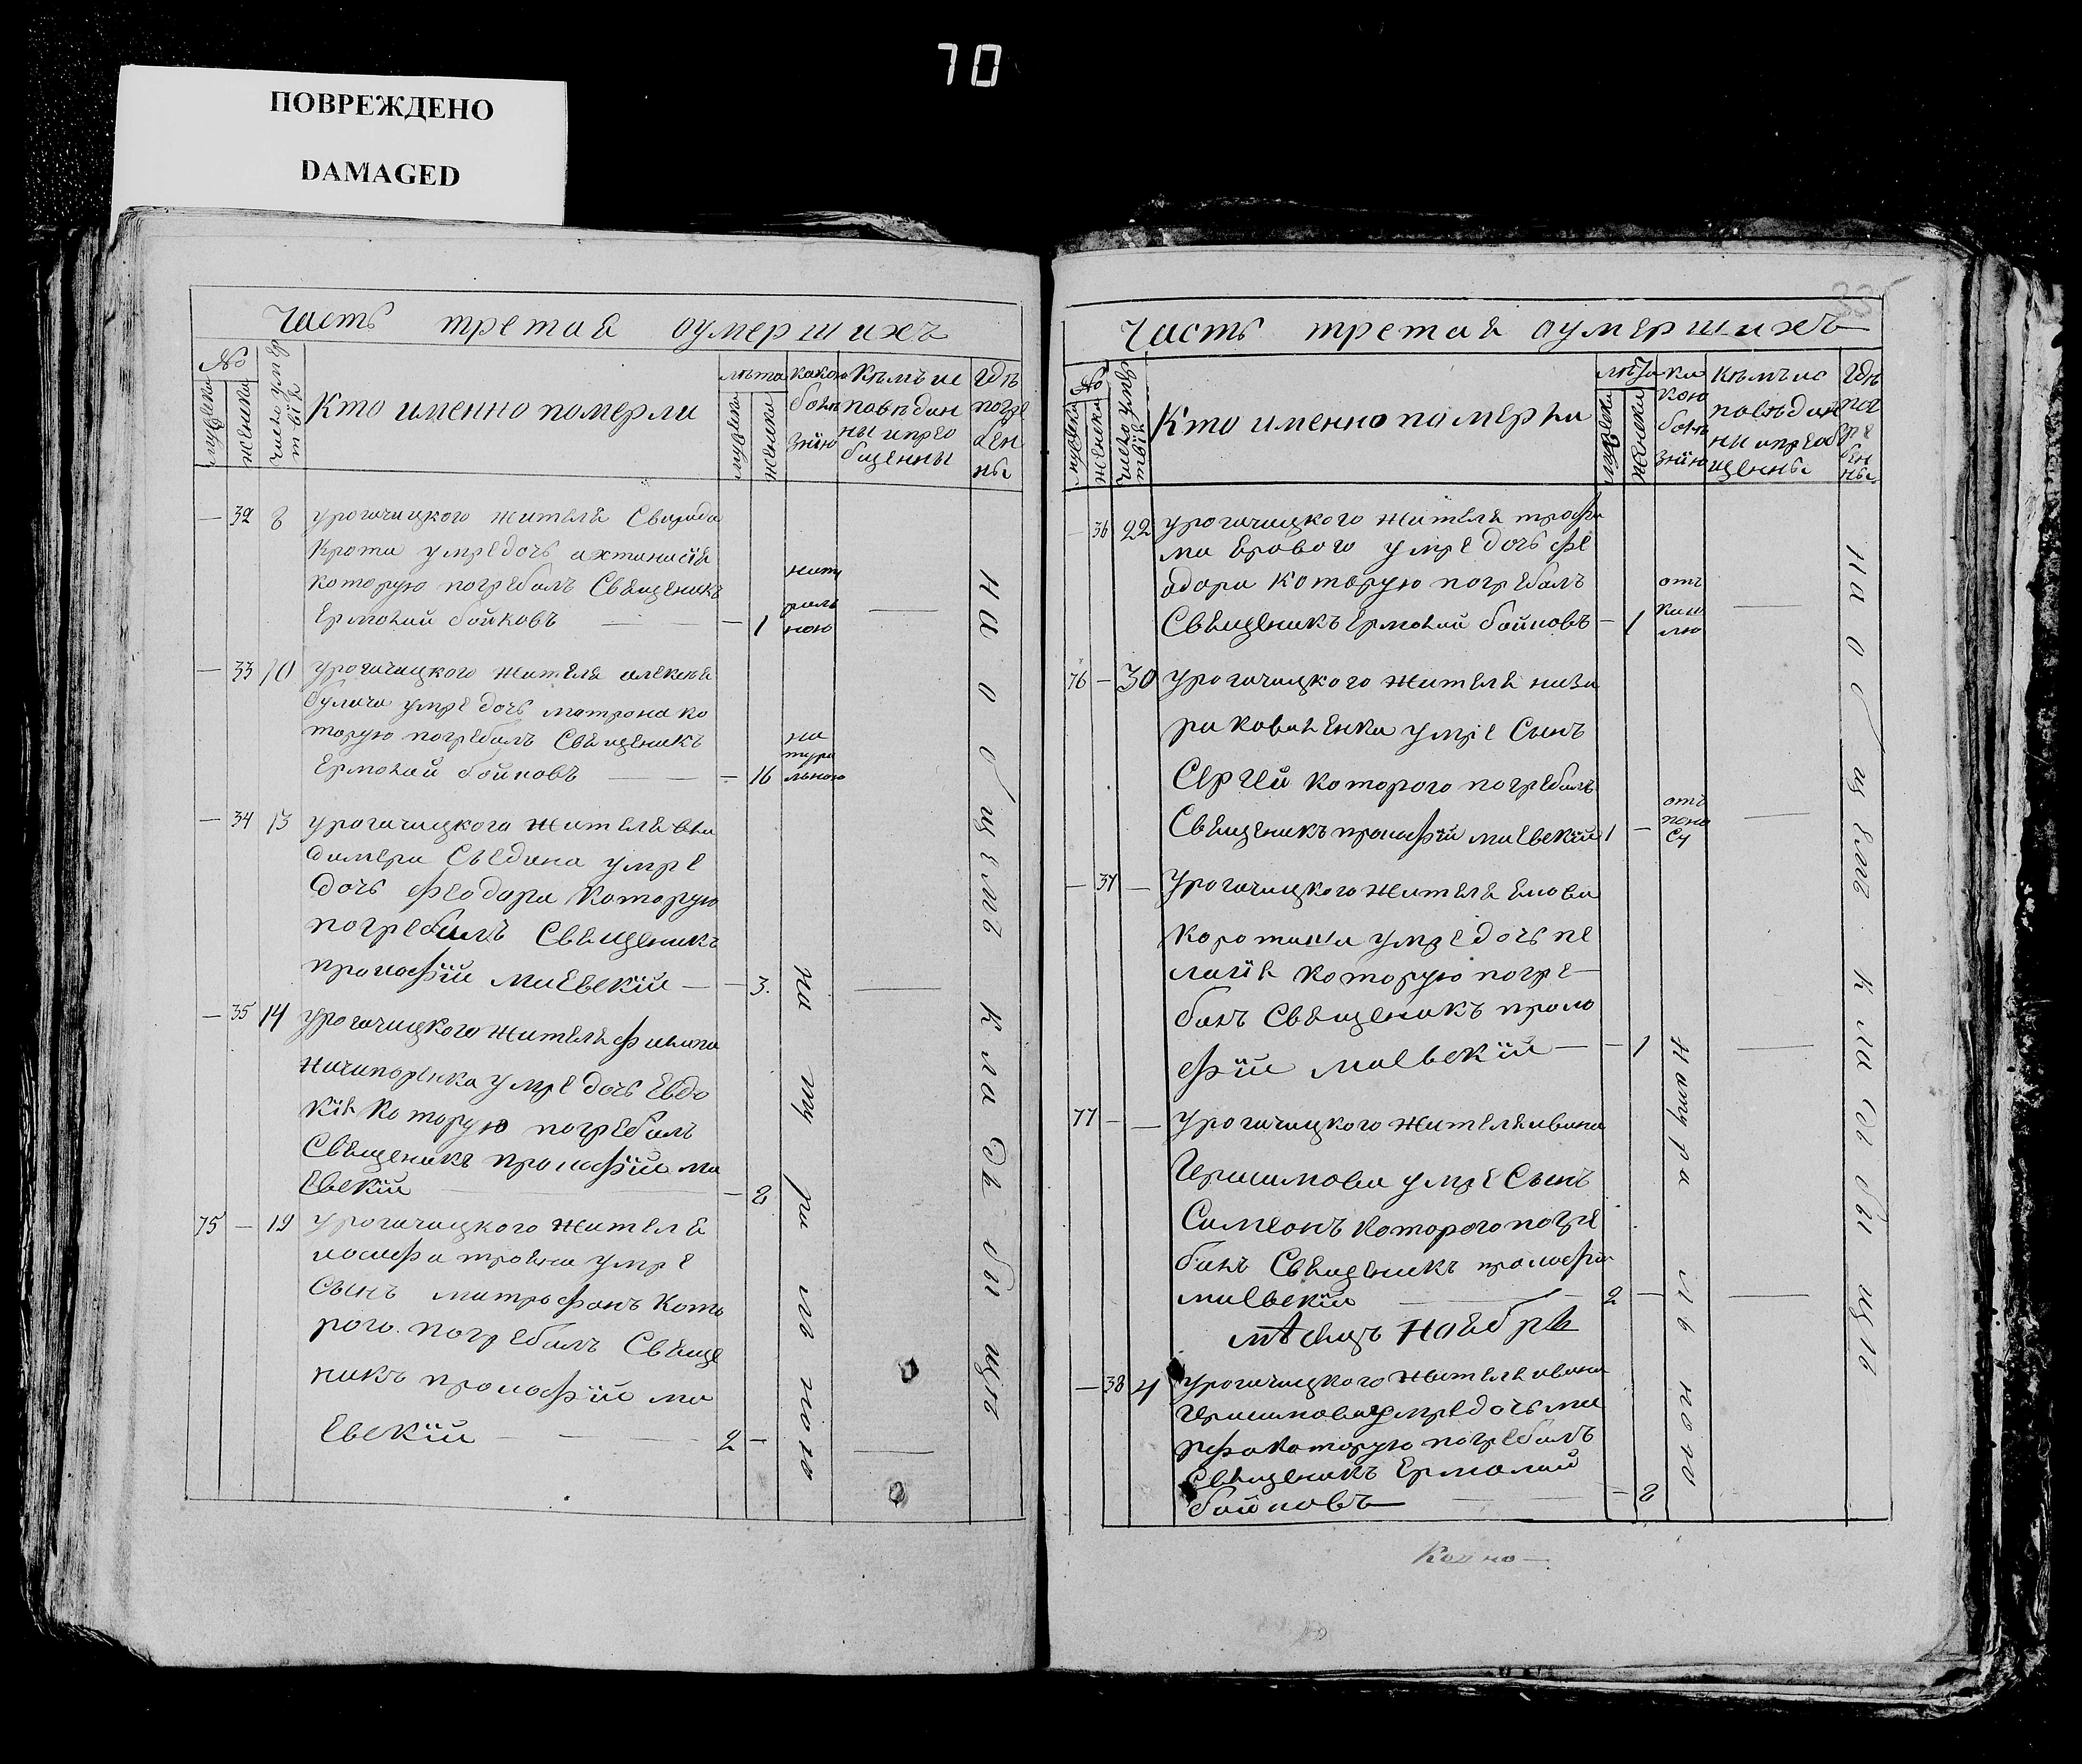 70
ПОВРЕЖДЕНО
DAMAGED
Часть третая оумершихъ
№
мужеска
женска
число умертвій
Кто именно померли
лѣта
мужеска
женска
какою болѣзнію
Кѣмъ исповѣданы и пріобщенны
Гдѣ погребенны
— 32 8 урогачицкого жителя Свирида
Крота умре дочь
которую погребалъ Священикъ
Ермолай бойковъ — — 1
натуральною
— 33 10 урогачицкого жителя алексѣя
булача умре дочь матрона ко
торую погребалъ Священикъ
Ермолай бойковъ — — 16
натуральною
— 34 13 урогачицкого жителя вла
димера Съедина умре
дочь феодора которую
погребалъ Священикъ
прокофій маевскій — — 3.
— 35 14 урогачицкого жителя филипа
ничипоренка умре дочь Евдо
кія которую погребалъ
Священикъ прокофій ма
евскій — — 2
75 — 19 урогачицкого жителя
иосифа трояна умре
сынъ митрофанъ кото
рого погребалъ Свяще
никъ прокофій ма
евскій — — 2 —
натуральною
на общемъ кладьбищѣ
Часть третая оумершихъ
№
мужеска
женска
число умертвій
Кто именно померли
лѣта
мужеска
женска
какою болѣзнію
Кѣмъ исповѣданы и пріобщенны
Гдѣ погребенны
— 36 22 урогачицкого жителя трофи
ма Ерового умре дочь фе
одора которую погребалъ
Священикъ Ермолай бойковъ — 1
отъ кашлю
76 — 30 урогачицкого жителя наза
ра коваленка умре Сынъ
Сергей которого погребалъ
Священикъ прокофій маевскій 1 —
отъ поносу
— 37 — урогачицкого жителя
умре дочь пе
лагія которую погре—
балъ Священикъ проко
фій маевскій — — 1
77 — — урогачицкого жителя ивана
Герасимова умре Сынъ
Симеонъ которого погре
балъ Священикъ прокофій
маевскій — 2 —
мѣсяцъ Ноябрь
— 38 4 урогачицкого жителя ивана
Герасимова умре дочь ма
рфа которую погребалъ
Священикъ Ермолай
бойковъ — — 2
натуральною
на общемъ кладьбищѣ